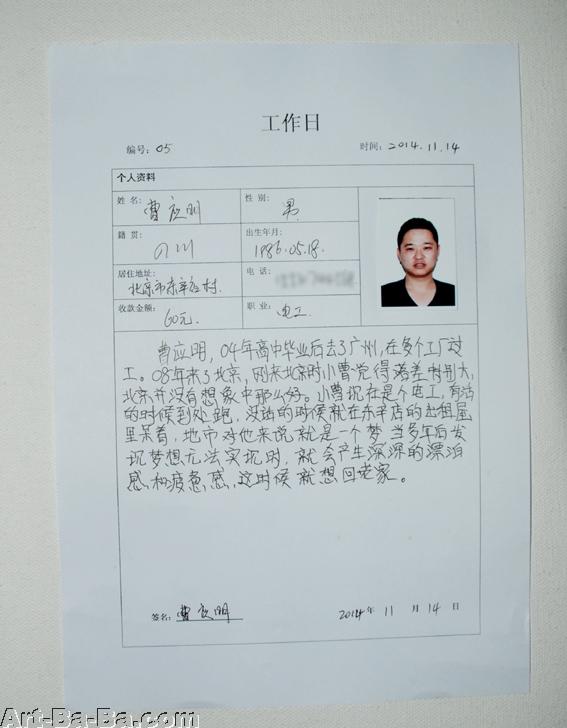 工作日
编号: 05 时间: 2014.11.14
个人资料
姓 名: 曹应明 性 别: 男
籍 贯: 四川 出生年月: 1986.05.18.
居住地址: 北京市东辛店村. 电 话:
收款金额: 60元. 职 业: 电工
曹应明,04年高中毕业后去了广州,在多个工厂改
工。08年来了北京,刚来北京时小曹觉得落差特别大,
北京并没有想象中那么好。小曹现在是个电工,有活
的时候到处跑,没活的时候就在东辛店的出租屋
里呆着,城市对他来说就是一个梦 当多年后发
现梦想无法实现时,就会产生深深的漂泊
感和疲惫感,这时候就想回老家。
签名: 曹应明 2014年 11 月 14 日
Art-Ba-Ba.com